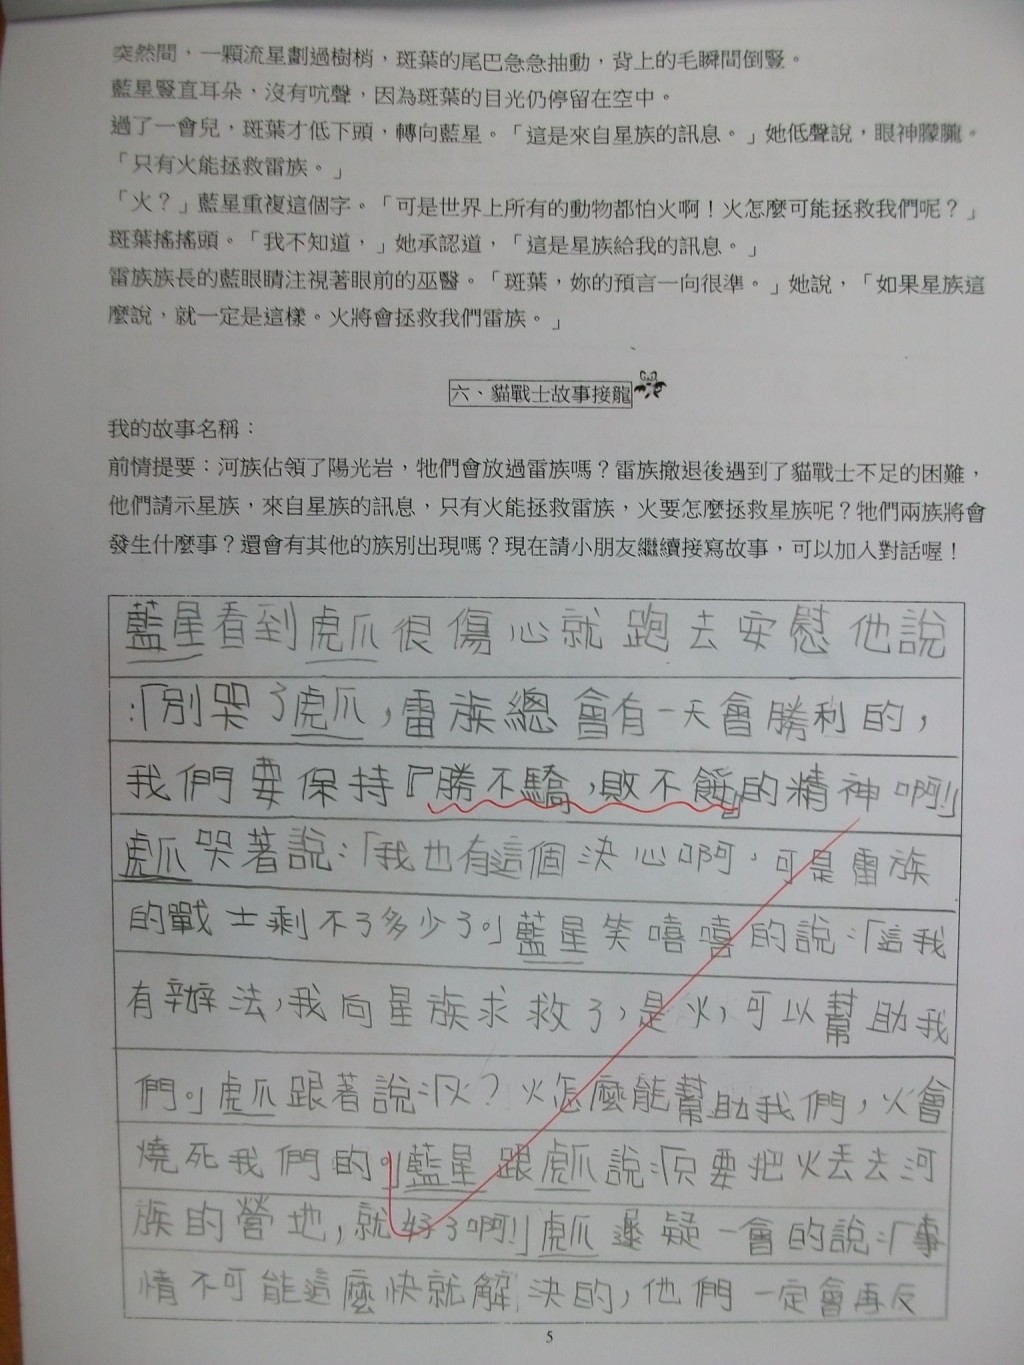 突然間，一顆流星劃過樹梢，斑葉的尾巴急急抽動，背上的毛瞬間倒豎。
藍星豎直耳朵，沒有吭聲，因為斑葉的目光仍停留在空中。
過了一會兒，斑葉才低下頭，轉向藍星。「這是來自星族的訊息。」她低聲說，眼神朦朧。
「只有火能拯救雷族。」
「火？」藍星重複這個字。「可是世界上所有的動物都怕火啊！火怎麼可能拯救我們呢？」
斑葉搖搖頭。「我不知道，」她承認道，「這是星族給我的訊息。」
雷族族長的藍眼睛注視著眼前的巫醫。「斑葉，妳的預言一向很準。」她說，「如果星族這
麼說，就一定是這樣。火將會拯救我們雷族。」
六、貓戰士故事接龍
我的故事名稱：
前情提要：河族佔領了陽光岩，牠們會放過雷族嗎？雷族撤退後遇到了貓戰士不足的困難，
他們請示星族，來自星族的訊息，只有火能拯救雷族，火要怎麼拯救星族呢？牠們兩族將會
發生什麼事？還會有其他的族別出現嗎？現在請小朋友繼續接寫故事，可以加入對話喔！
藍星看到虎爪很傷心就跑去安慰他說
：「別哭了虎爪，雷族總會有一天會勝利的，
我們要保持『勝不驕，敗不餒』的精神啊！」
虎爪哭著說：「我也有這個決心啊，可是雷族
的戰士剩不了多少了。」藍星笑嘻嘻的說：「這我
有辦法，我向星族求救了，是火，可以幫助我
們。」虎爪跟著說：「火？火怎麼能幫助我們，火會
燒死我們的。」藍星跟虎爪說：「只要把火丟去河
族的營地，就好了啊！」虎爪遲疑一會的說：「事
情不可能這麼快就解決的，他們一定會再反
5